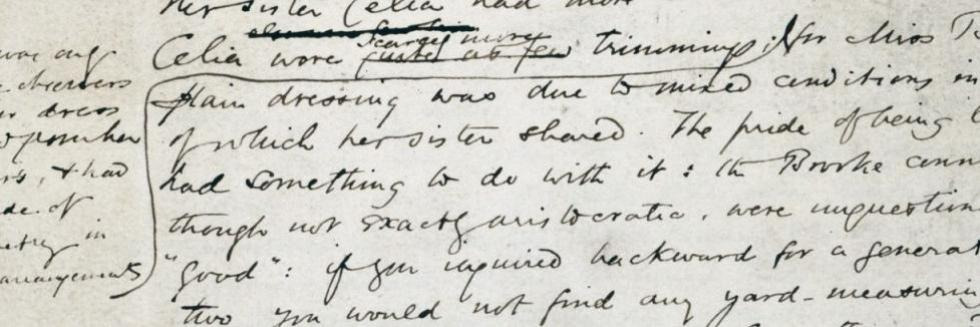 her sister Celia had more
Celia wore scarcely more trimmings; for Miss B
plain dressing was due to mixed conditions in
of which her sister shared. The pride of being
had something to do with it: the Brooke conn
though not exactly aristocratic, were unquestion
"good": if you inquired backward for a generat
two you would not find any yard-measurin
was only
observers
dress
&had
de. of
in
arrangements